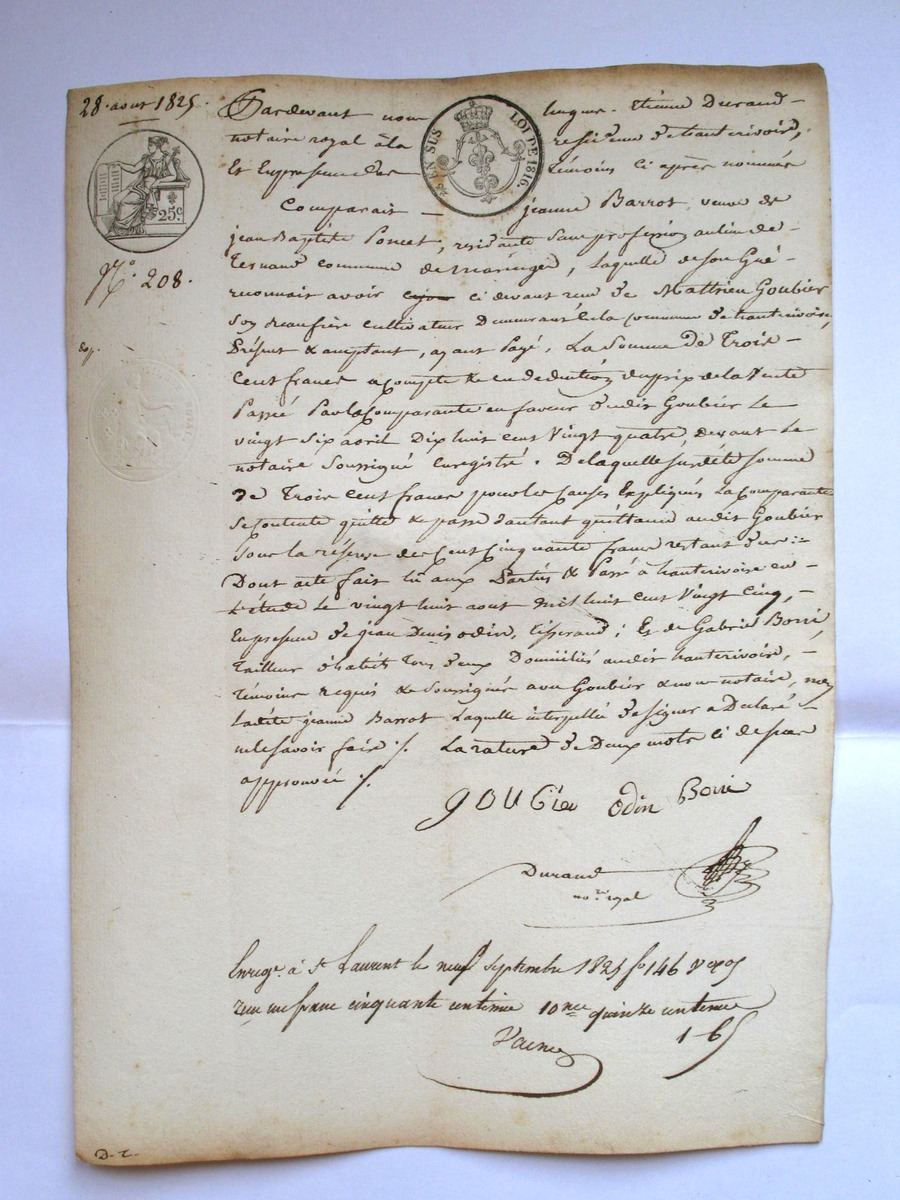 28. aout 1825.
Pardevant nous hugues - Etienne Durand -
notaire royal à la residence d'hauterivoire,
Et En presence des témoins ci après nommés
EN SUS LOI DE 1816.
25c.
No. 208.
Comparait - jeanne Barrot veuve de
jean Baptiste Poncet, residante sans profession au lieu de -
commune de maringes, laquelle de son Gré -
reconnait avoir ci devant recu de Matthieu Goubier
son beaufrère cultivateur Demeurant à la commune d'hauterivoire,
Présent & acceptant, ayant Payé, La Somme De Trois -
Cent francs acompte & en deduction du prix de la Vente
Passé Par la Comparante en faveur dudit Goubier Le
vingt Six avril Dix huit cent Vingt quatre, devant Le
notaire Soussigné enregistré. De laquelle susdite somme
De Trois Cent francs pour les Causes Expliqués La Comparante
Se Contente quitte & passe d'autant quittance audit Goubier
Sous la réserve des Cent Cinquante francs restant dus :=
Dont acte fait lu aux Parties & Passé à hauterivoire en -
L'étude Le vingt huit aout mil huit cent Vingt Cinq, -
En presence de jean Denis odin, tisserand ; Et de Gabriel Borié
tailleur d'habits Tous deux Domiciliés audit hauterivoire, -
témoins requis & Soussignés avec Goubier & nous notaire, non
Ladite jeanne Barrot Laquelle interpellée de signer a Déclaré -
ne le Savoir faire ./. La rature de Deux mots ci dessus
approuvée ./.
gOUBier odin Borié
Durand
nore. royal
Enregé. à St Laurent le neuf septembre 1825 fo 146
recu un franc cinquante centimes 10me quinze centimes
1-65
D. r.